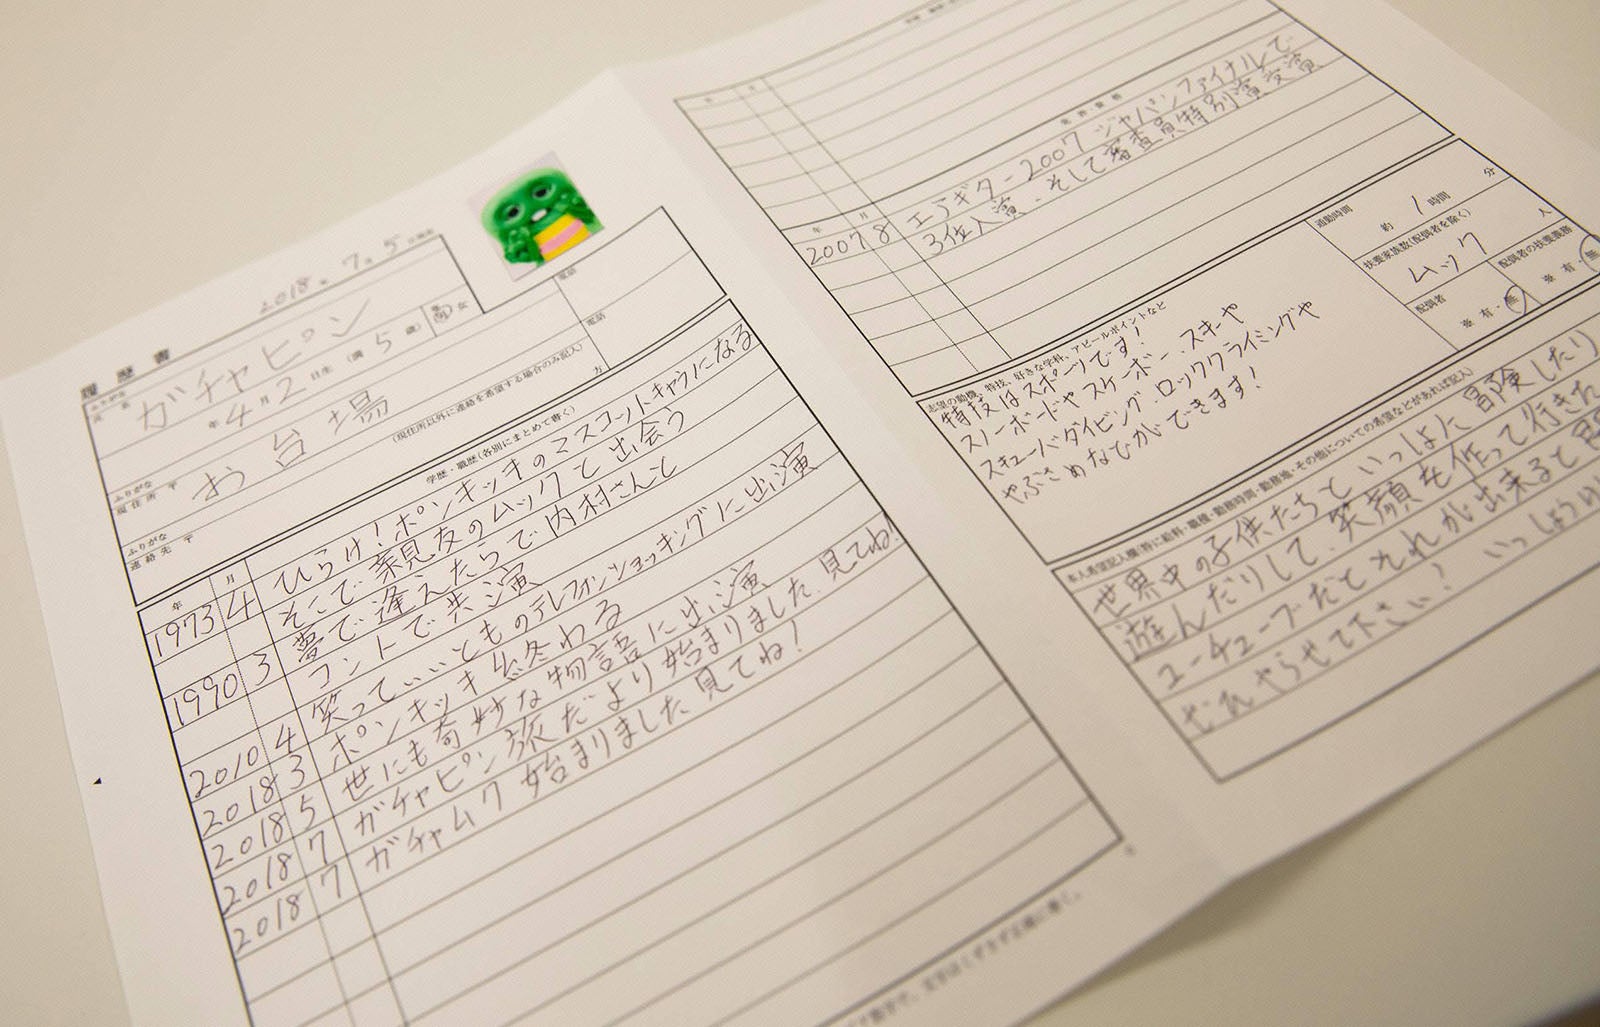 履歴書
2018年 7月 5日現在
ふりがな
氏名
ガチャピン
年 4月 2日生 (満 5 歳)
男 女
ふりがな
現住所 〒
お台場
電話
ふりがな
連絡先 〒
(現住所以外に連絡を希望する場合のみ記入)
方
電話
年 月 学歴・職歴(各別にまとめて書く)
1973 4 ひらけ!ポンキッキのマスコットキャラになる
そこで親友のムックと出会う
1990 3 夢で逢えたらで内村さんと
コントで共演
2010 4 笑っていいとものテレフォンショッキングに出演
2018 3 ポンキッキ終わる
2018 5 世にも奇妙な物語に出演
2018 7 ガチャピン旅だより始まりました.見てね!
2018 7 ガチャムク始まりました見てね!
年 月
年 月 免許・資格
2007 8 エアギター2007 ジャパンファイナルで
3位入賞、そして審査員特別賞受賞
志望の動機、特技、好きな学科、アピールポイントなど
特技はスポーツです!
スノーボードやスケーボー、スキーや
スキューバダイビング、ロッククライミングや
やぶさめなどができます!
通勤時間
約 1 時間 分
扶養家族数(配偶者を除く)
ムック 人
配偶者
※ 有・無
配偶者の扶養義務
※ 有・無
本人希望記入欄(特に給料・職種・勤務時間・勤務地・その他についての希望などがあれば記入)
世界中の子供たちといっしょに冒険したり
遊んだりして、笑顔を作って行きた
ユーチューブだとそれが出来ると思
ぜひやらせて下さい!いっしょうけ